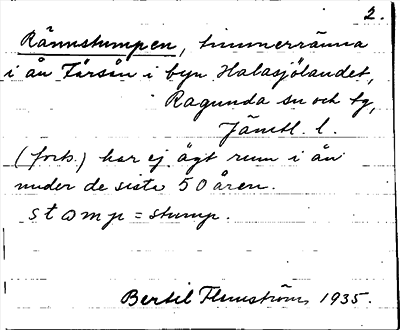 2.
Rännstumpen, timmerränna
i ån Färsån i byn Halasjölandet,
Ragunda sn och tg,
Jämtl. l.
(forts.) har ej ägt rum i ån
under de sista 50 åren.
stomp = stump.
Bertil Flemström, 1935.